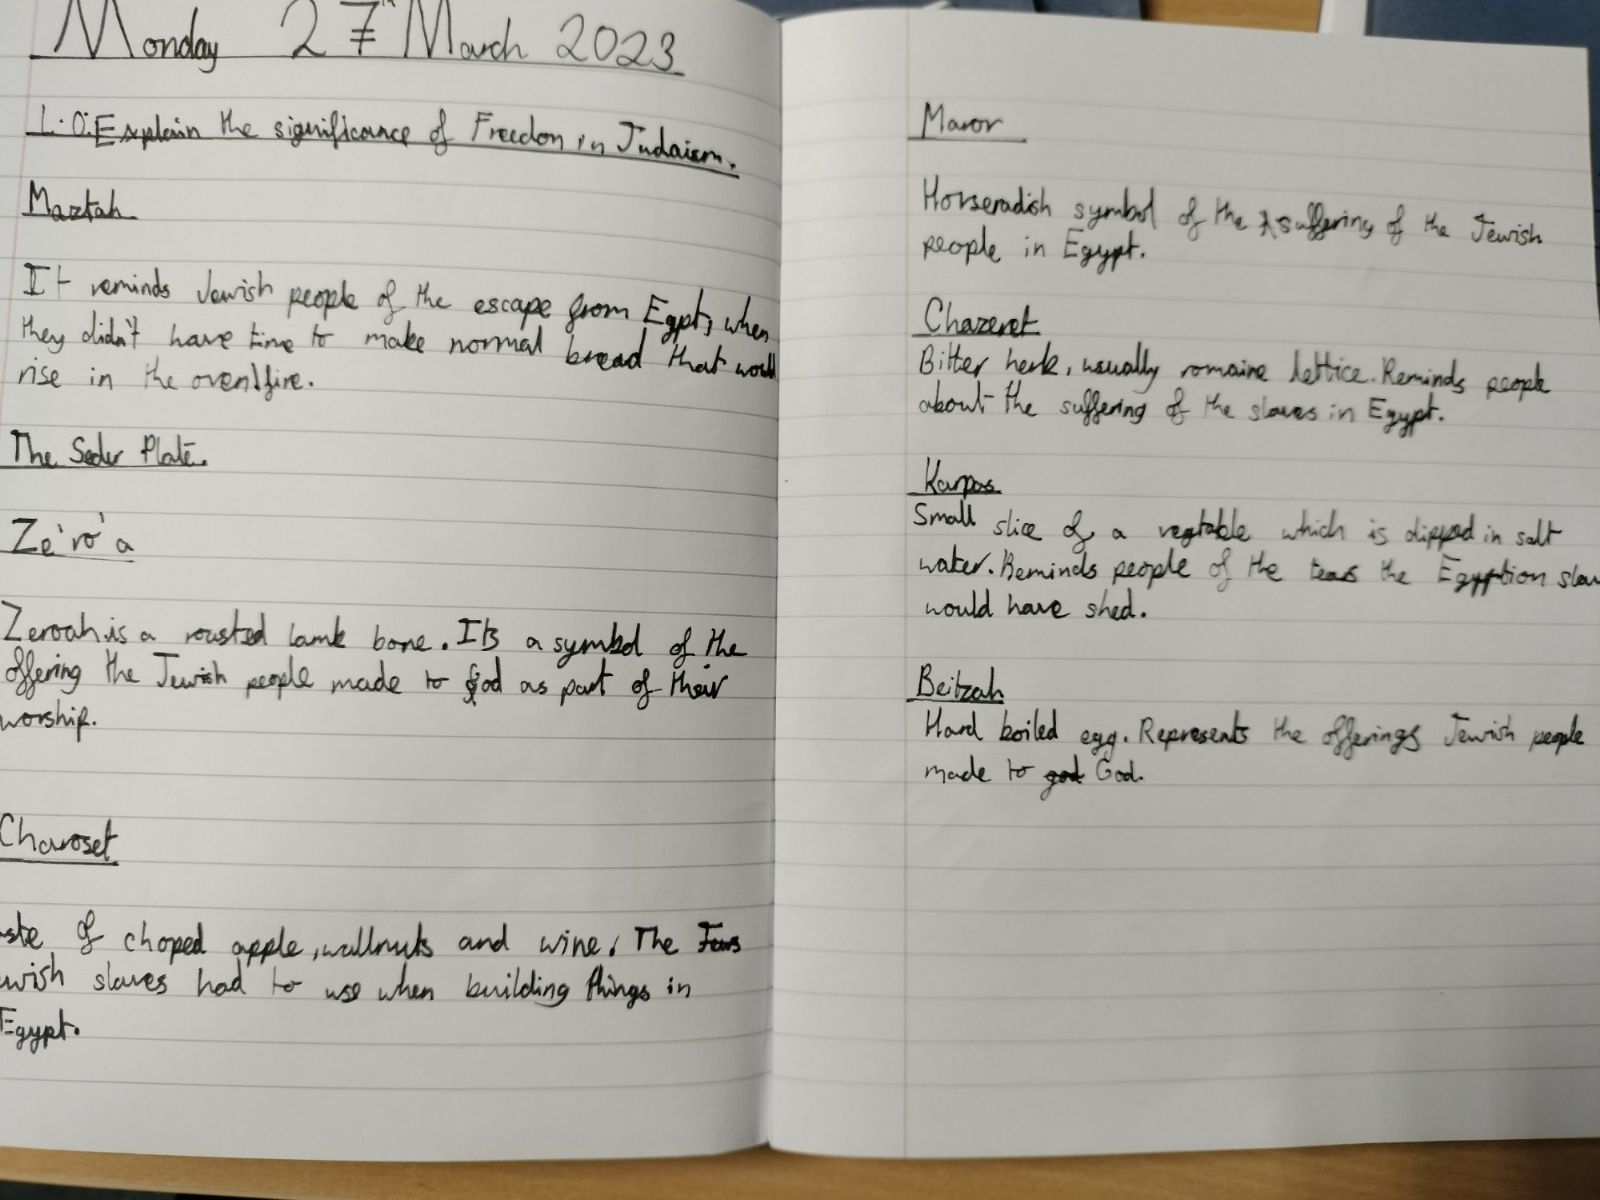 Monday 27th March 2023
L.O: Explain the significance of Freedon in Judaism.
Maztah
It reminds Jewish people of the escape from Egpt, when
they didn't have time to make normal bread that would
rise in the oven/fire.
The Seder Plate.
Ze'ro'a
Zeroah is a roasted lamb bone. Its a symbol of the
offering the Jewish people made to God as part of their
worship.
Charoset
aste of choped apple, wallnuts and wine. The
ewish slaves had to use when building things in
Egypt.
Maror
Horseradish symbol of the suffering of the Jewish
people in Egypt.
Chazeret
Bitter herb, usually romaine lettice. Reminds people
about the suffering of the slaves in Egypt.
Karpas
Small slice of a vegtable which is dipped in salt
water. Reminds people of the tears the Egyption slav
would have shed.
Beitzah
Hard boiled egg. Represents the offerings Jewish people
made to god God.